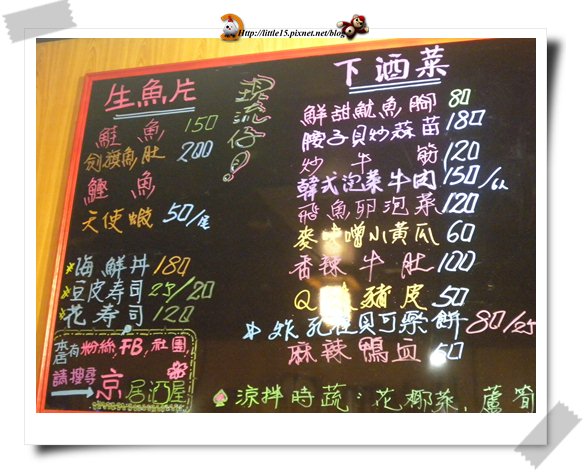 Http://little15.pixnet.net/blog
生魚片
鮭魚 150
劍旗魚肚 200
鰹魚
天使蝦 50/尾
現流仔!
※海鮮丼 180
※豆皮壽司 25/20
※花壽司 120
本店有粉絲,FB,社團,
請搜尋
京居酒屋
下酒菜
鮮甜魷魚腳 80
腰子貝炒蒜苗 180
炒牛筋 120
韓式泡菜牛肉 150/
飛魚卵泡菜 120
麥味噌小黃瓜 60
香辣牛肚 100
Q 豬皮 50
炸 貝可樂餅 80/25
麻辣鴨血 50
♠涼拌時蔬:花椰菜,蘆筍